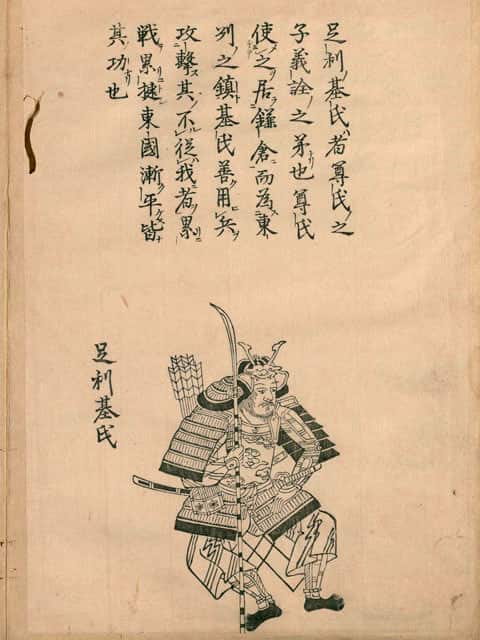 足利基氏者尊氏之
子義詮之弟也尊氏
使之居鎌倉而為東
州之鎮基氏善用兵
攻擊其不從我者累
戦累捷東國漸平皆
其功也
足利基氏